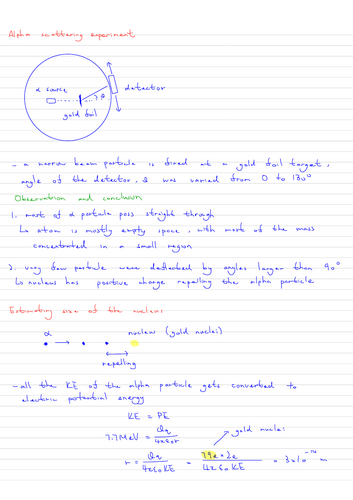 Alpha scattering experiment
α source
detector
gold foil
- a narrow beam particle is fired at a gold foil target,
angle of the detector, θ was varied from 0 to 180°
Observation and conclusion
1. most of α particle pass straight through
↳ atom is mostly empty space, with most of the mass
concentrated in a small region
2. very few particle were deflected by angles larger than 90°
↳ nucleus has positive charge repelling the alpha particle
Estimating size of the nucleus
α
nucleus (gold nuclei)
repelling
- all the KE of the alpha particle gets converted to
electric potential energy
KE = PE
7.7 MeV = Qq / 4πε₀r
gold nuclei
r = Qq / 4πε₀KE = 79e × 2e / 4πε₀KE = 3×10⁻¹⁴ m